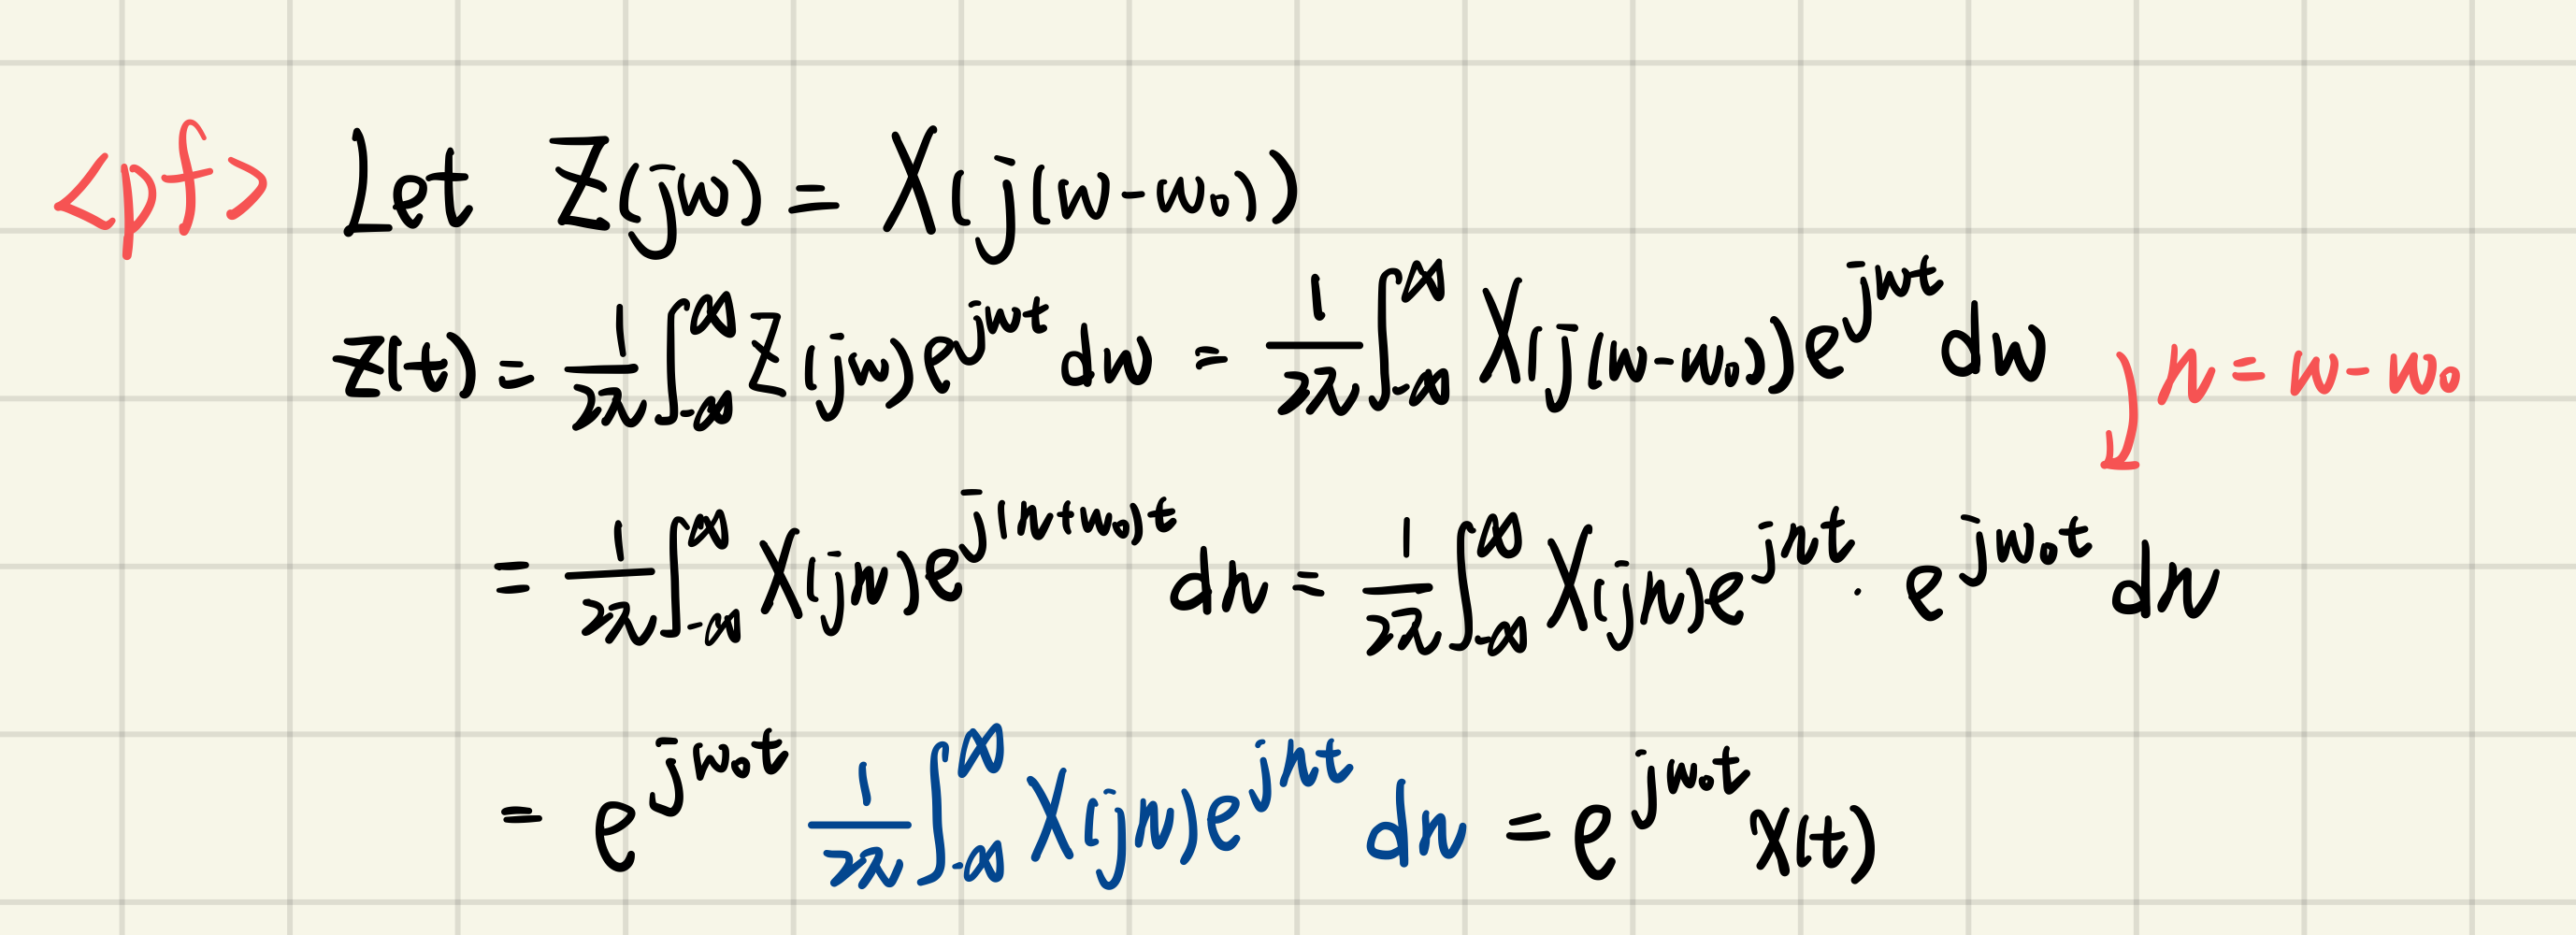 <pf> Let Z(jw) = X(j(w-w₀))
z(t) = 1/2π ∫_{-∞}^{∞} Z(jw)e^{jwt} dw = 1/2π ∫_{-∞}^{∞} X(j(w-w₀))e^{jwt} dw η = w-w₀
= 1/2π ∫_{-∞}^{∞} X(jη)e^{j(η+w₀)t} dη = 1/2π ∫_{-∞}^{∞} X(jη)e^{jηt} · e^{jw₀t} dη
= e^{jw₀t} 1/2π ∫_{-∞}^{∞} X(jη)e^{jηt} dη = e^{jw₀t} x(t)